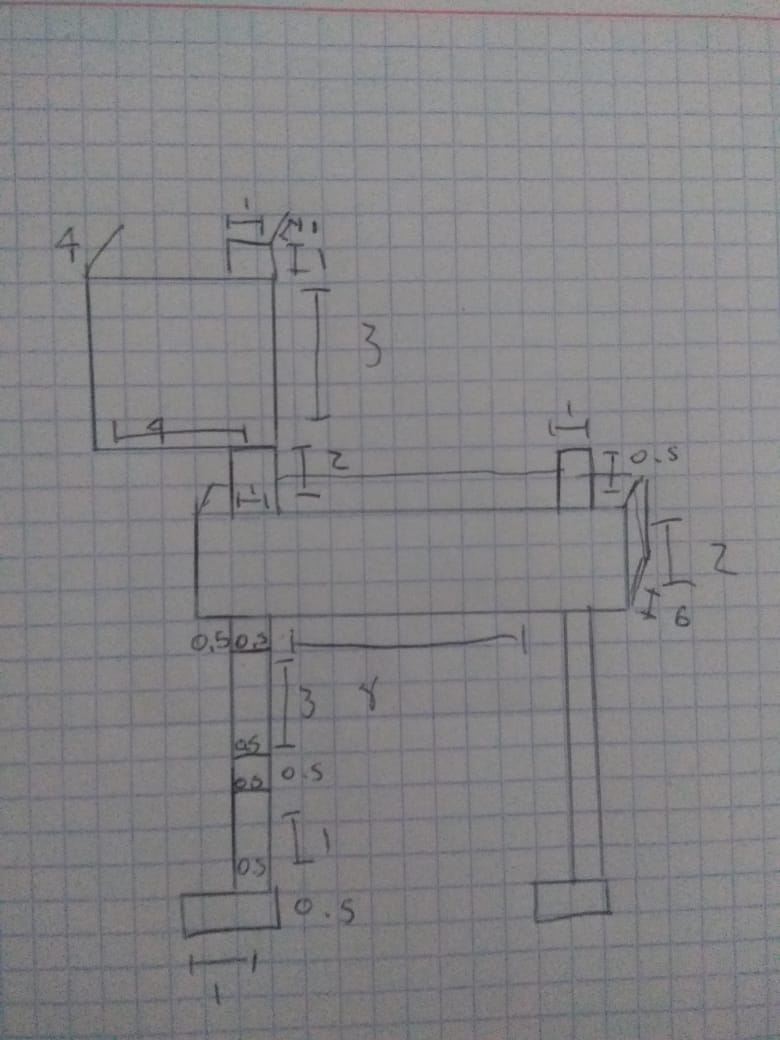 1
4
1
1
3
4
2
1
0.5
1
2
6
0.5 0.5
3
8
0.5
0.5
0.5
1
0.5
0.5
1